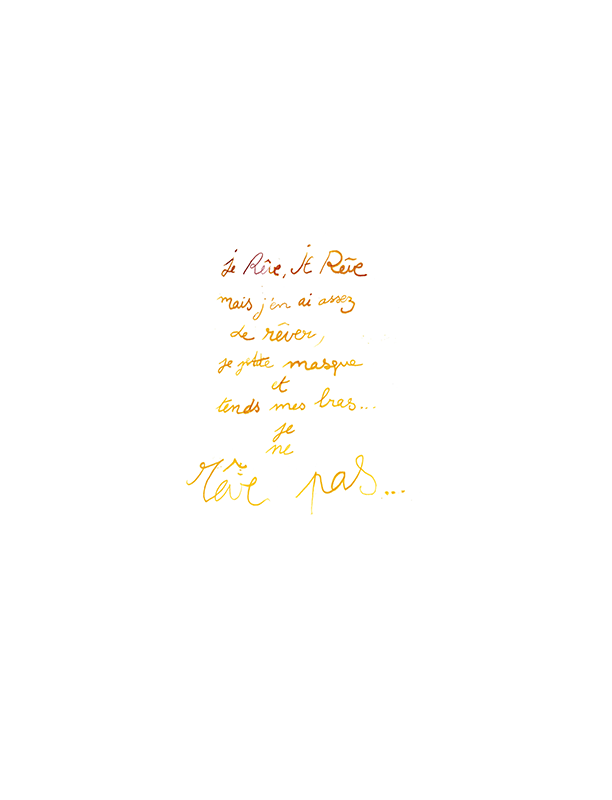 je Rêve, Je Rêve
mais j'en ai assez
de rêver,
je jette masque
et
tends mes bras...
je
ne
rêve pas...